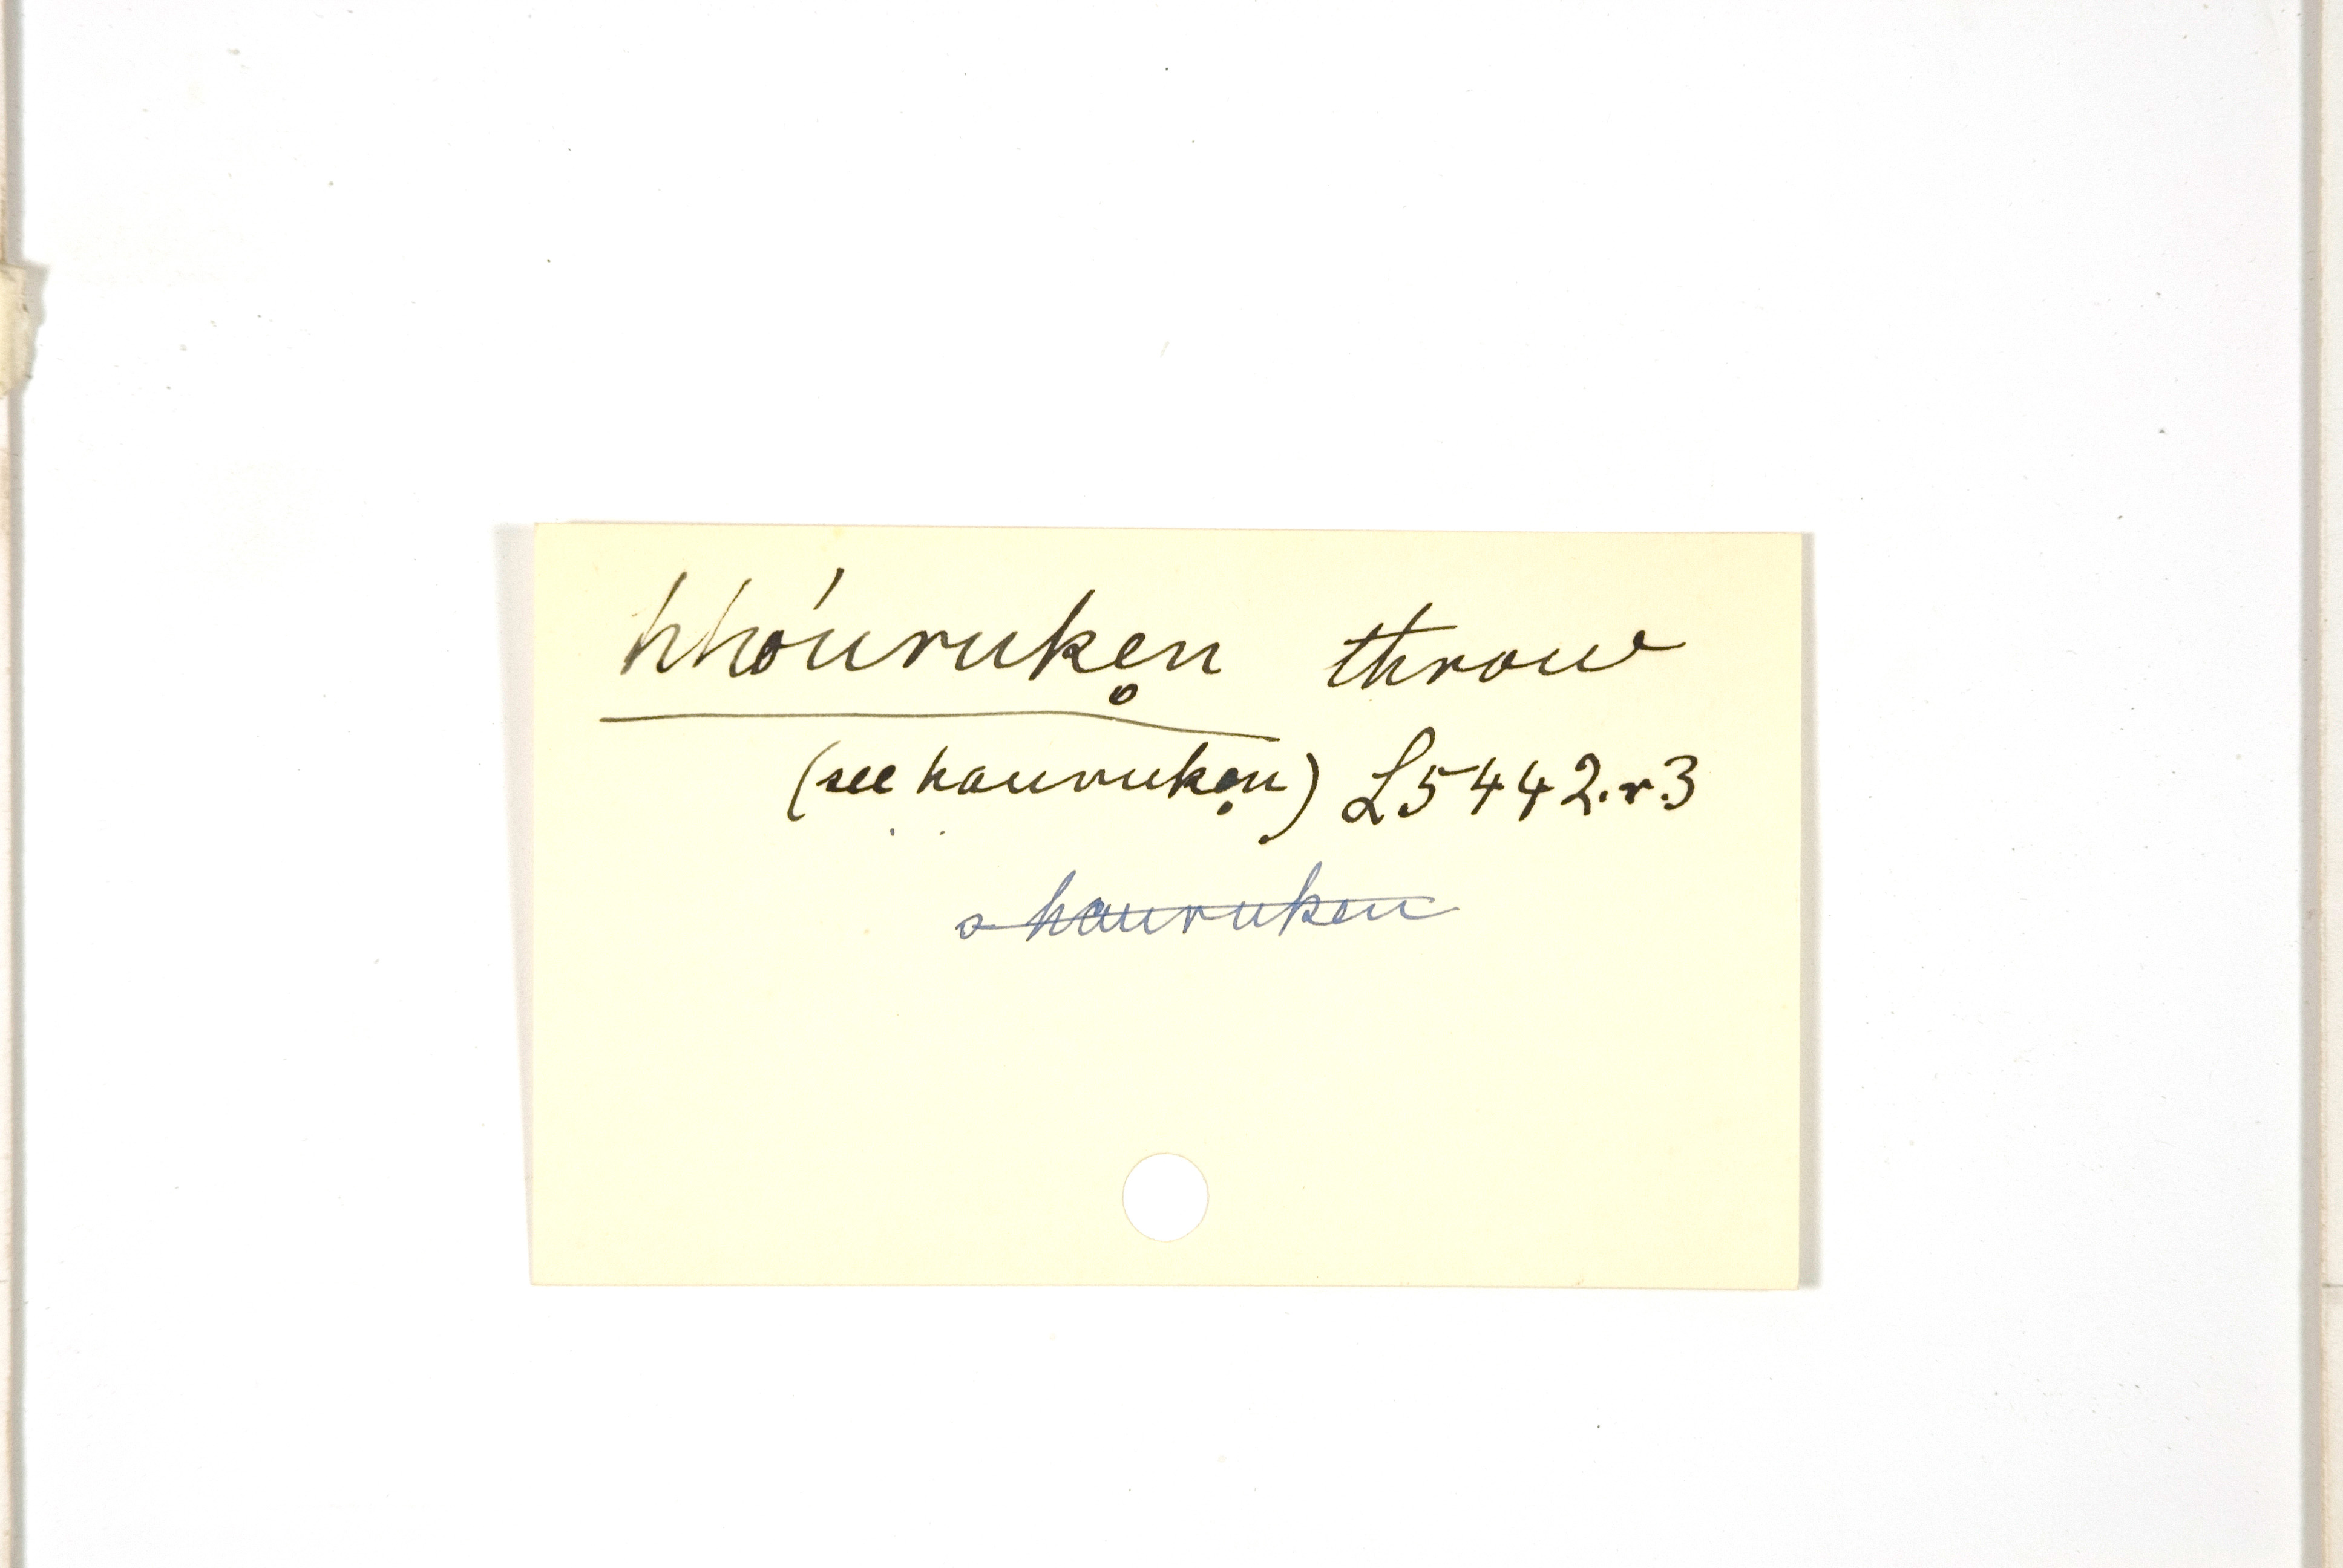 hhóuruke̥n throw
(see hauruke̥n) L5442.r.3
~~o hauruken~~